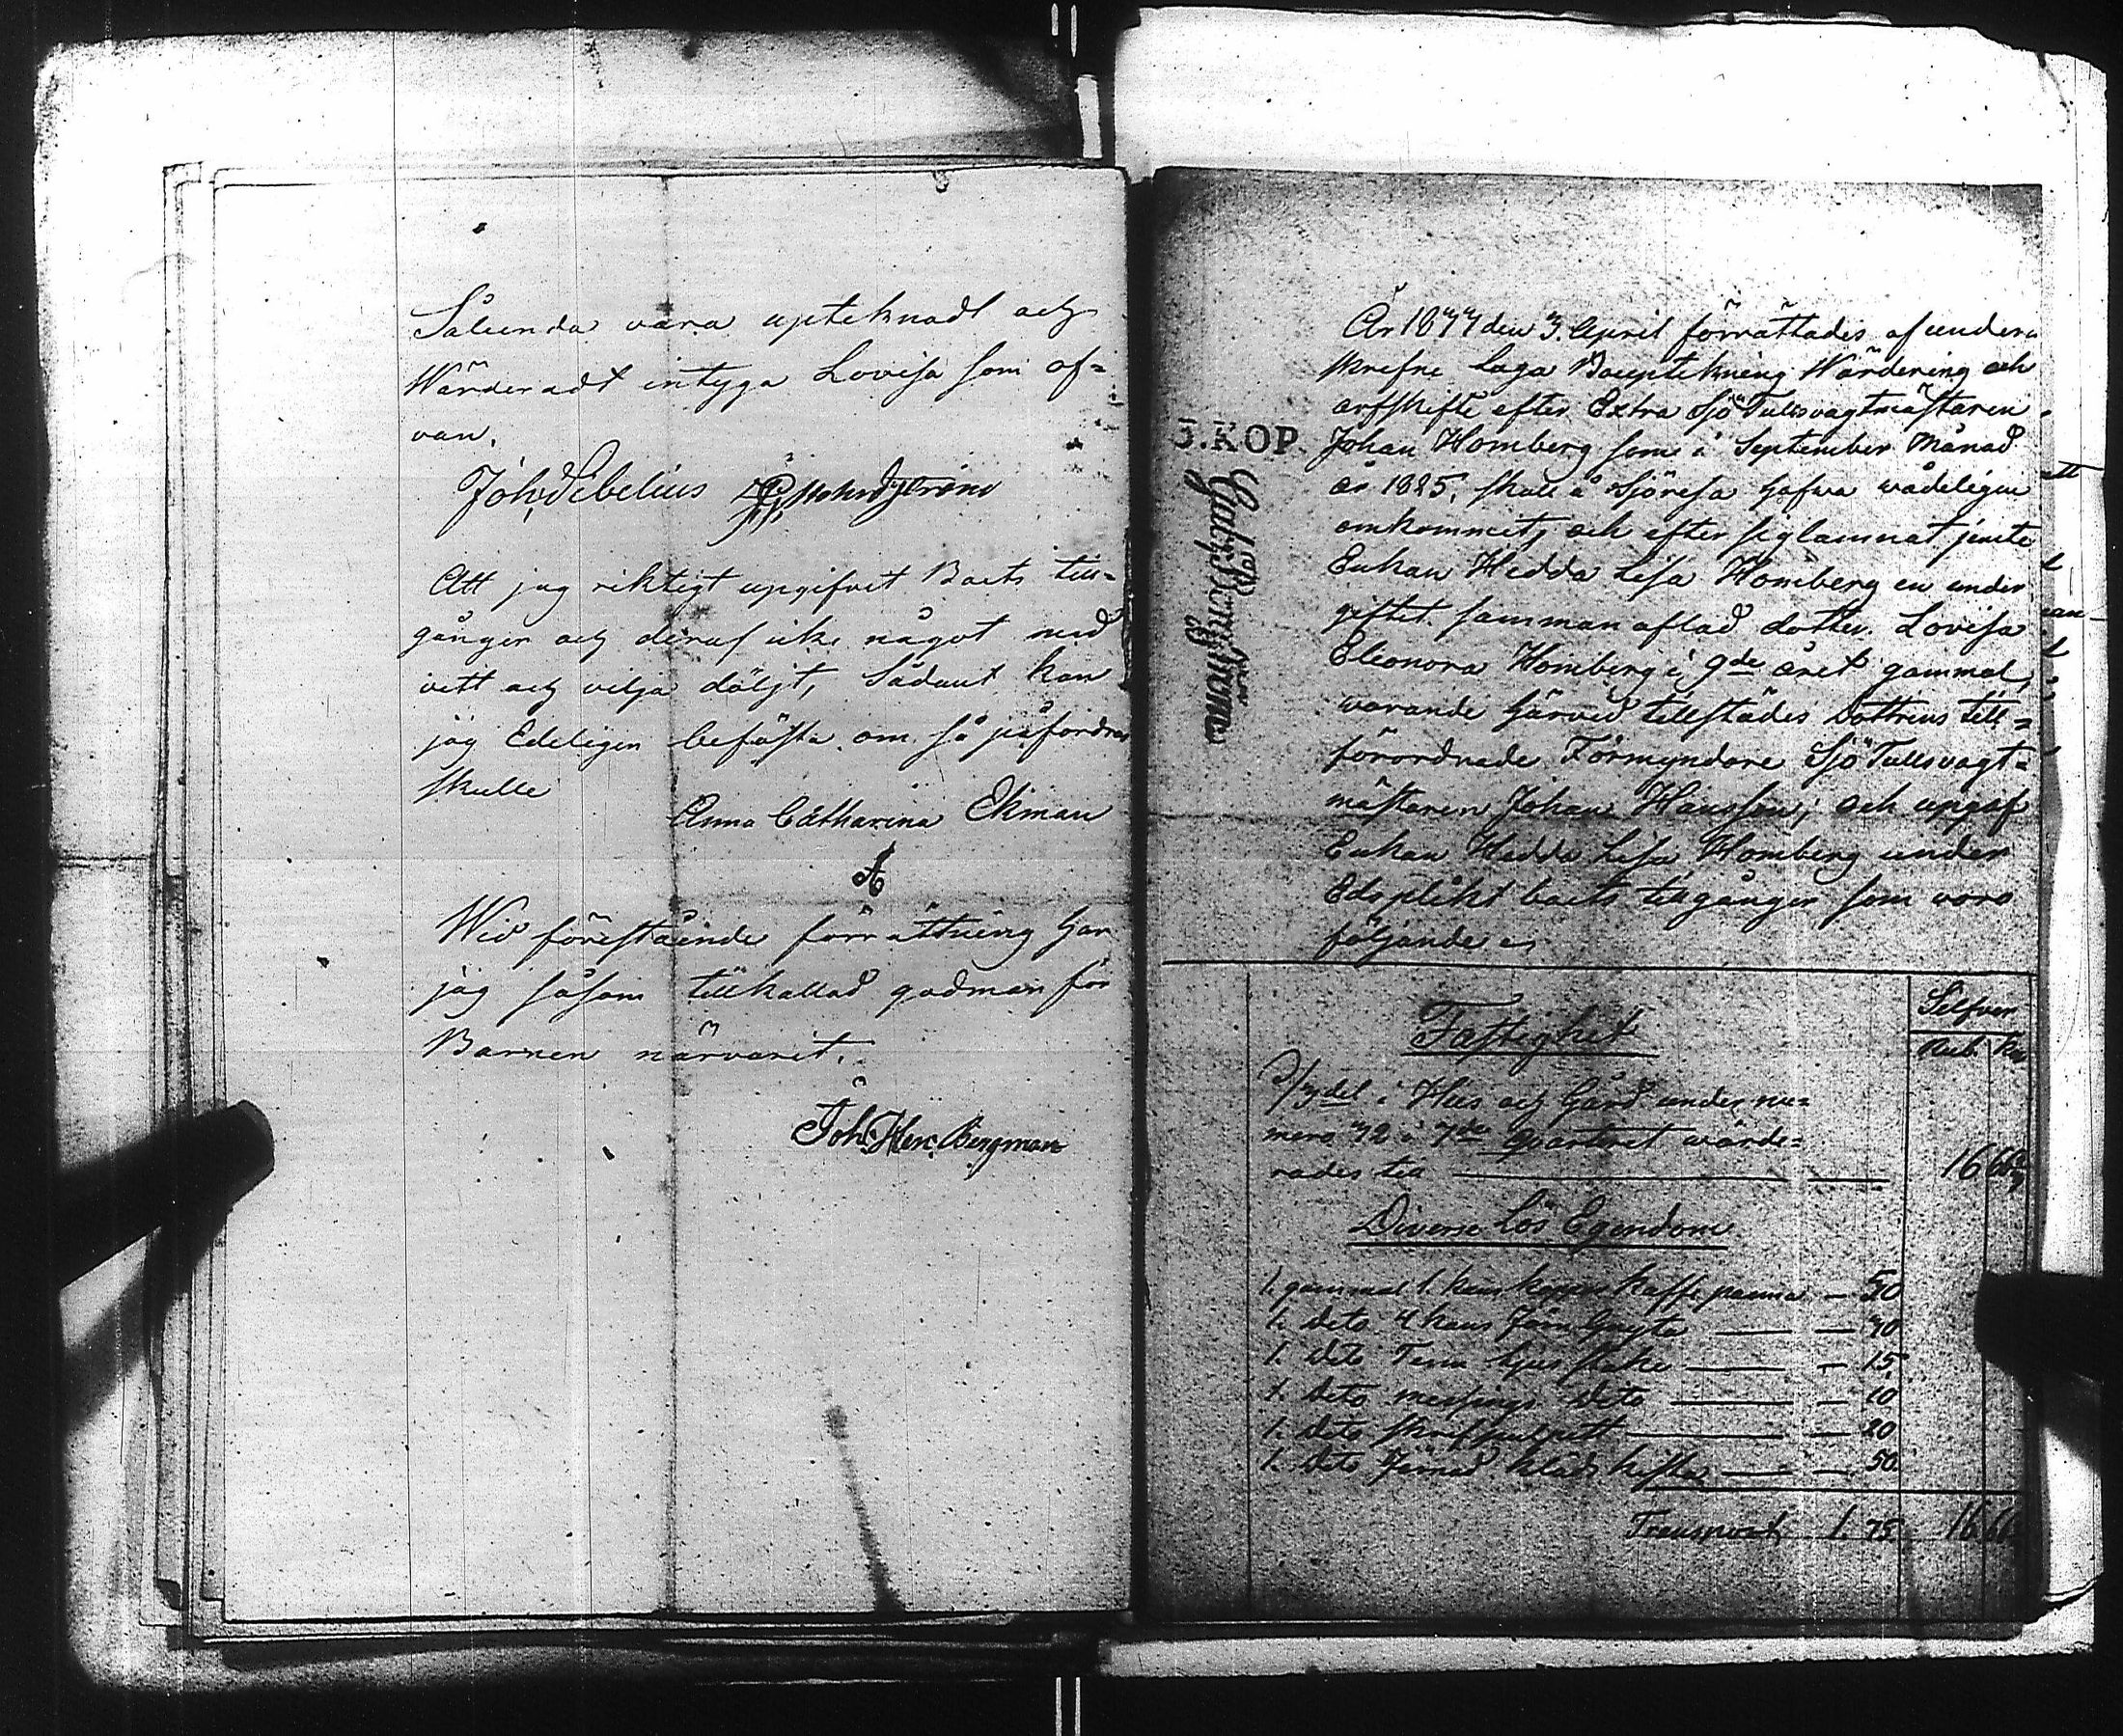 Sålunda vara upteknadt och
Wärderadt intyga Lovisa som of=
van.
Joh Sibelius
Att jag riktigt upgifvit Boets till=
gånger och deraf icke något med
vett och vilja döljt, Sådant kan
jag Edeligen befästa om så påfordras
skulle
Anna Catharina Ekman
Wid förestående förrättning har
jag såsom tillkallad godman för
Barnen närvarit.
Joh: Hen: Bergman
År 1877 den 3. April förrättades af under
skrefne Laga Bouptekning Wärdering och
arfskifte efter Extra Sjö Tullsvagtmästaren
S.KOP.
Johan Homberg som i September Månad
år 1825, skall å Sjöresa hafva vådeligen
omkommit, och efter sig lämnat jemte
Enkan Hedda Lisa Homberg en under
giftet samman aflad dotter Lovisa
Eleonora Homberg i 9de året gammal,
warande härvid tillstädes Dottrens till=
förordnade Förmyndare Sjö Tullsvagt=
mästaren Johan Hansson; och upgaf
Enkan Hedda Lisa Homberg under
Edsplikt boets tillgångar som voro
följande
Selfver
Rub. Kop
Fastighet
del i Hus och Gård under nu=
mero 72 i 7de Qvarteret wärde=
rades till 16 66
Diverse Lös Egendom
1. gammal 1. kans koppar kaffe panna — 50
1. dito 4 kans Järn Gryta — 
1. dito Tenn ljus stake — 15
1. dito messings dito — 10
1. dito skrifpulpett — 20
1. dito Järnad klädskista — 50
Transport 1 75 16 66